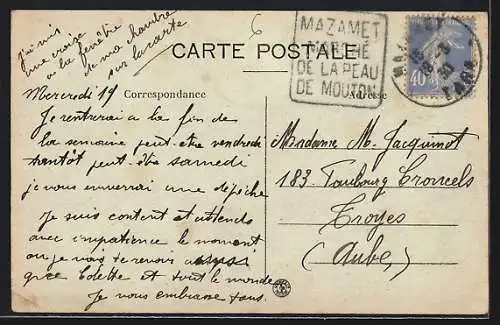 j'ai mis
une croix
a la fenêtre
de ma chambre
sur la carte
6
CARTE POSTALE
MAZAMET
MARCHÉ
DE LA PEAU
DE MOUTON
40
TARN
Mercredi 19
Correspondance
Adresse
Je rentrerai a la fin de
la semaine peut-être vendredi
tantôt peut-être samedi
je vous enverrai une depêche
Je suis content et attends
avec impatience le moment
ou je vais te revoir
que Colette et tout le monde
Je vous embrasse tous.
Madame M. Jacquinot
183. Faubourg Croncels
Troyes
(Aube)